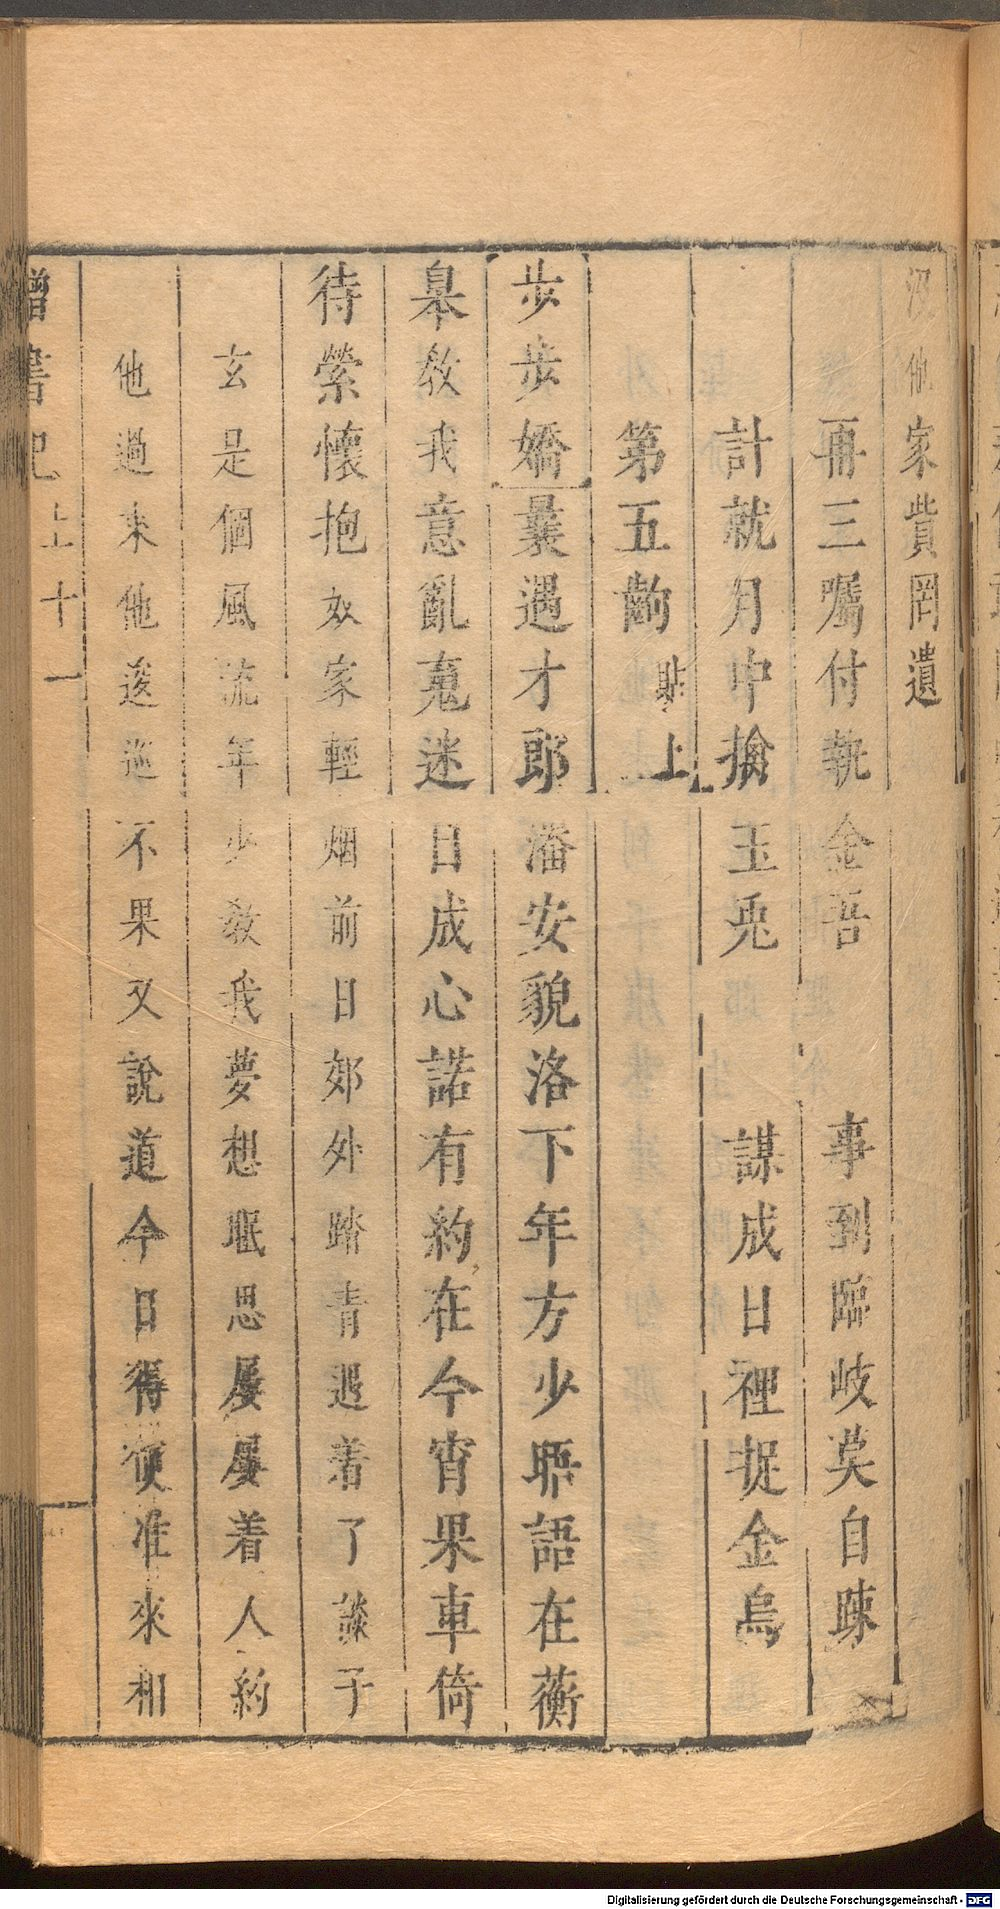 沒他家貲罔遺
再三囑付執金吾　事到臨歧莫自踈
計就月中擒玉兎　謀成日裡捉金烏
第五齣 貼上
步步嬌 曩遇才郎潘安貌洛下年方少聏語在蘅
臯敎我意亂䰟迷日成心諾有約在今宵果車倚
待縈懷抱 奴家輕烟前日郊外踏青遇着了談子
玄是個風流年少敎我夢想眠思屡屡着人約
他過來他逡巡不果又說道今日得便准來相
書記 上 十一
Digitalisierung gefördert durch die Deutsche Forschungsgemeinschaft - DFG